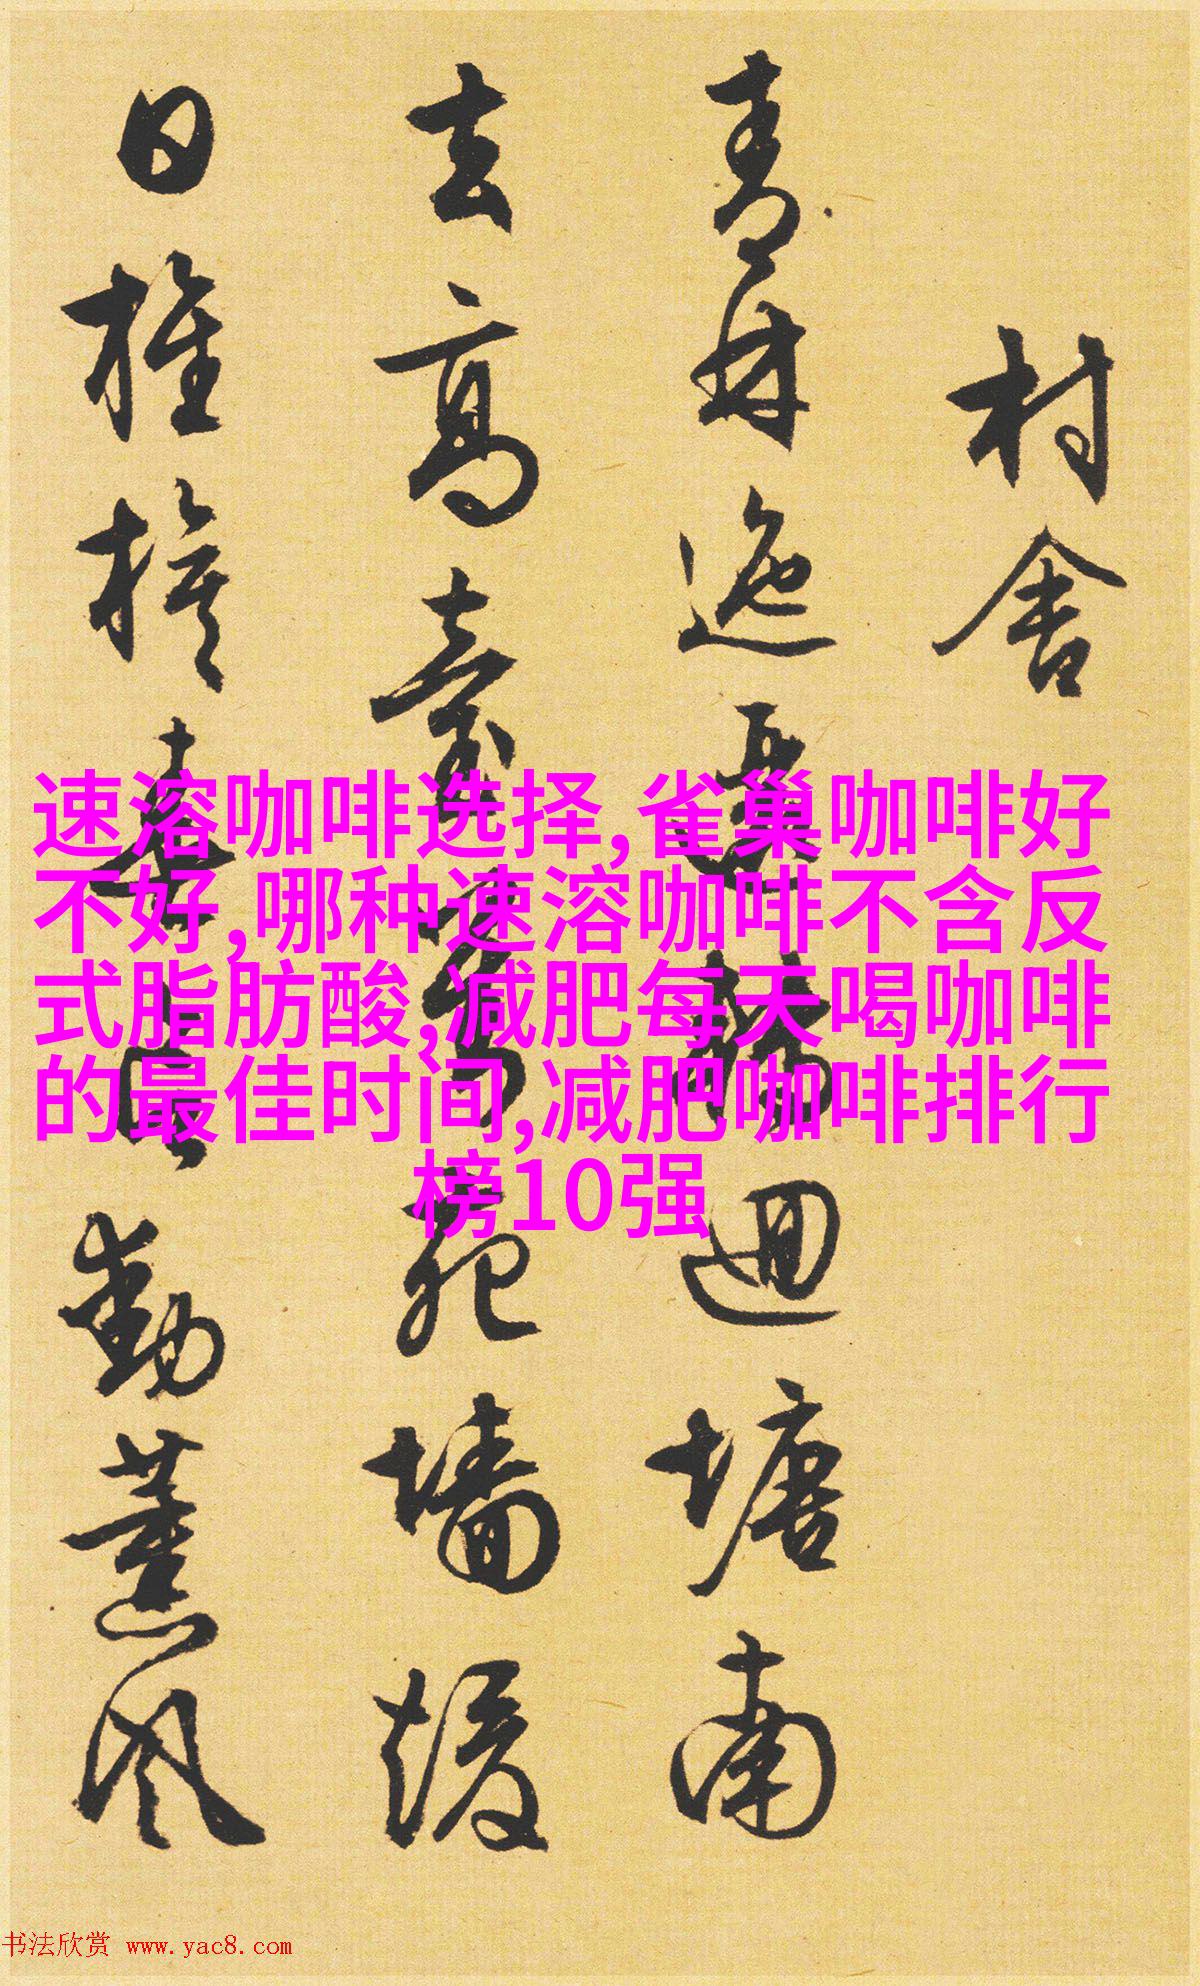 村舍
青林迤邐轉迴塘南
去高臺對苑墻煖
日旌旗春欲動薰風
速溶咖啡选择,雀巢咖啡好
不好,哪种速溶咖啡不含反
式脂肪酸,减肥每天喝咖啡
的最佳时间,减肥咖啡排行
榜10强
书法欣赏 www.yac8.com